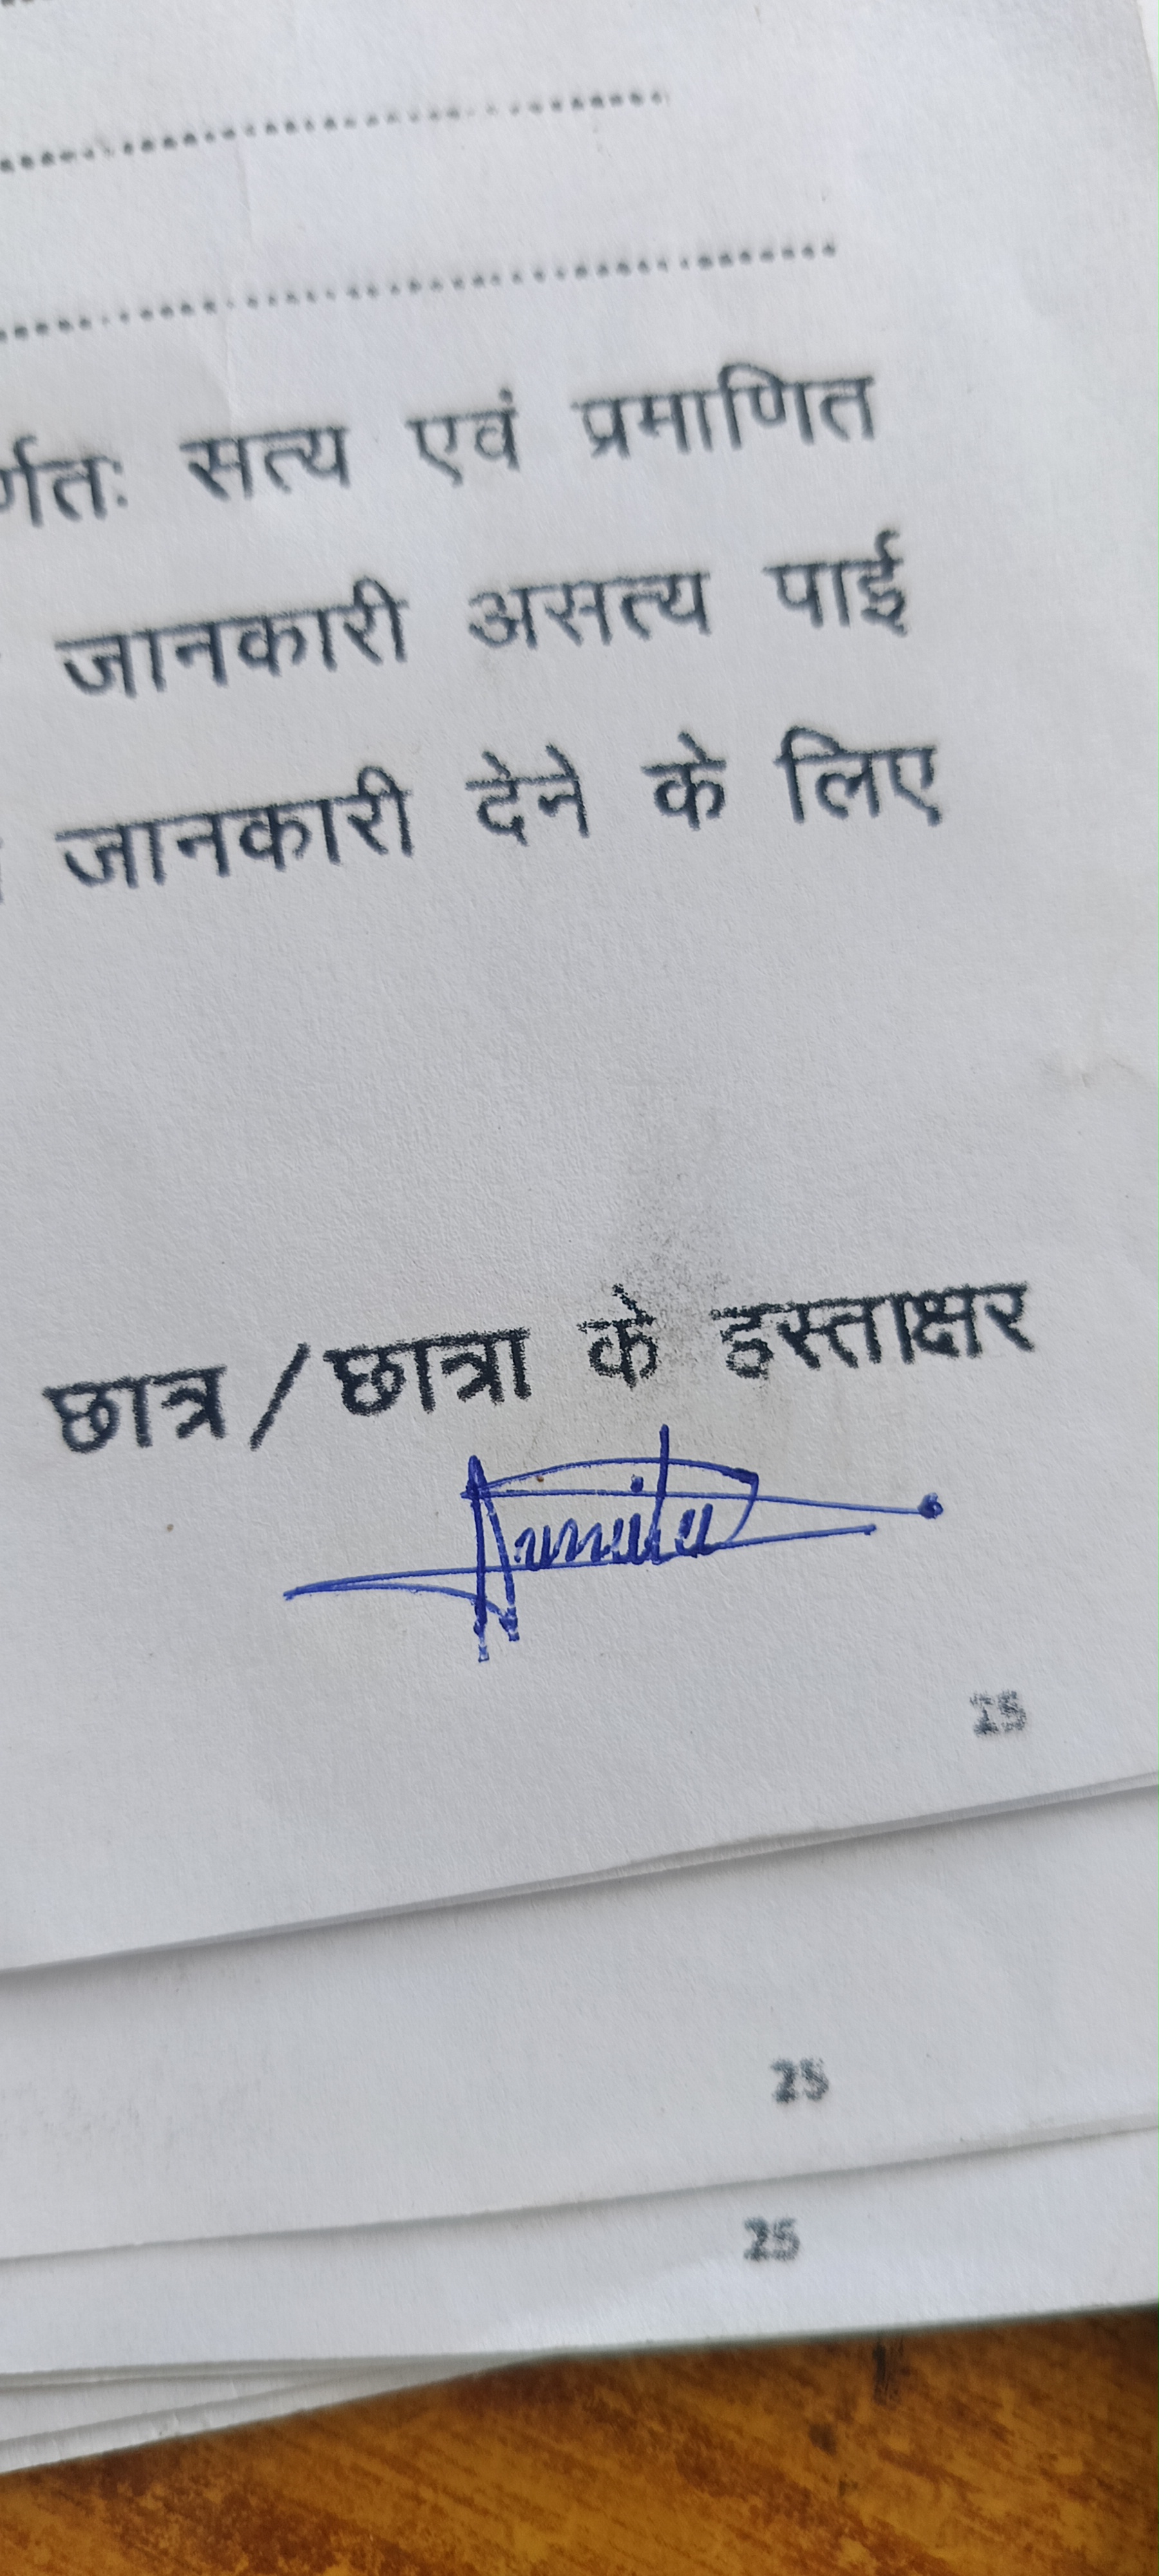 र्णतः सत्य एवं प्रमाणित
जानकारी असत्य पाई
जानकारी देने के लिए
छात्र/छात्रा के हस्ताक्षर
25
25
25